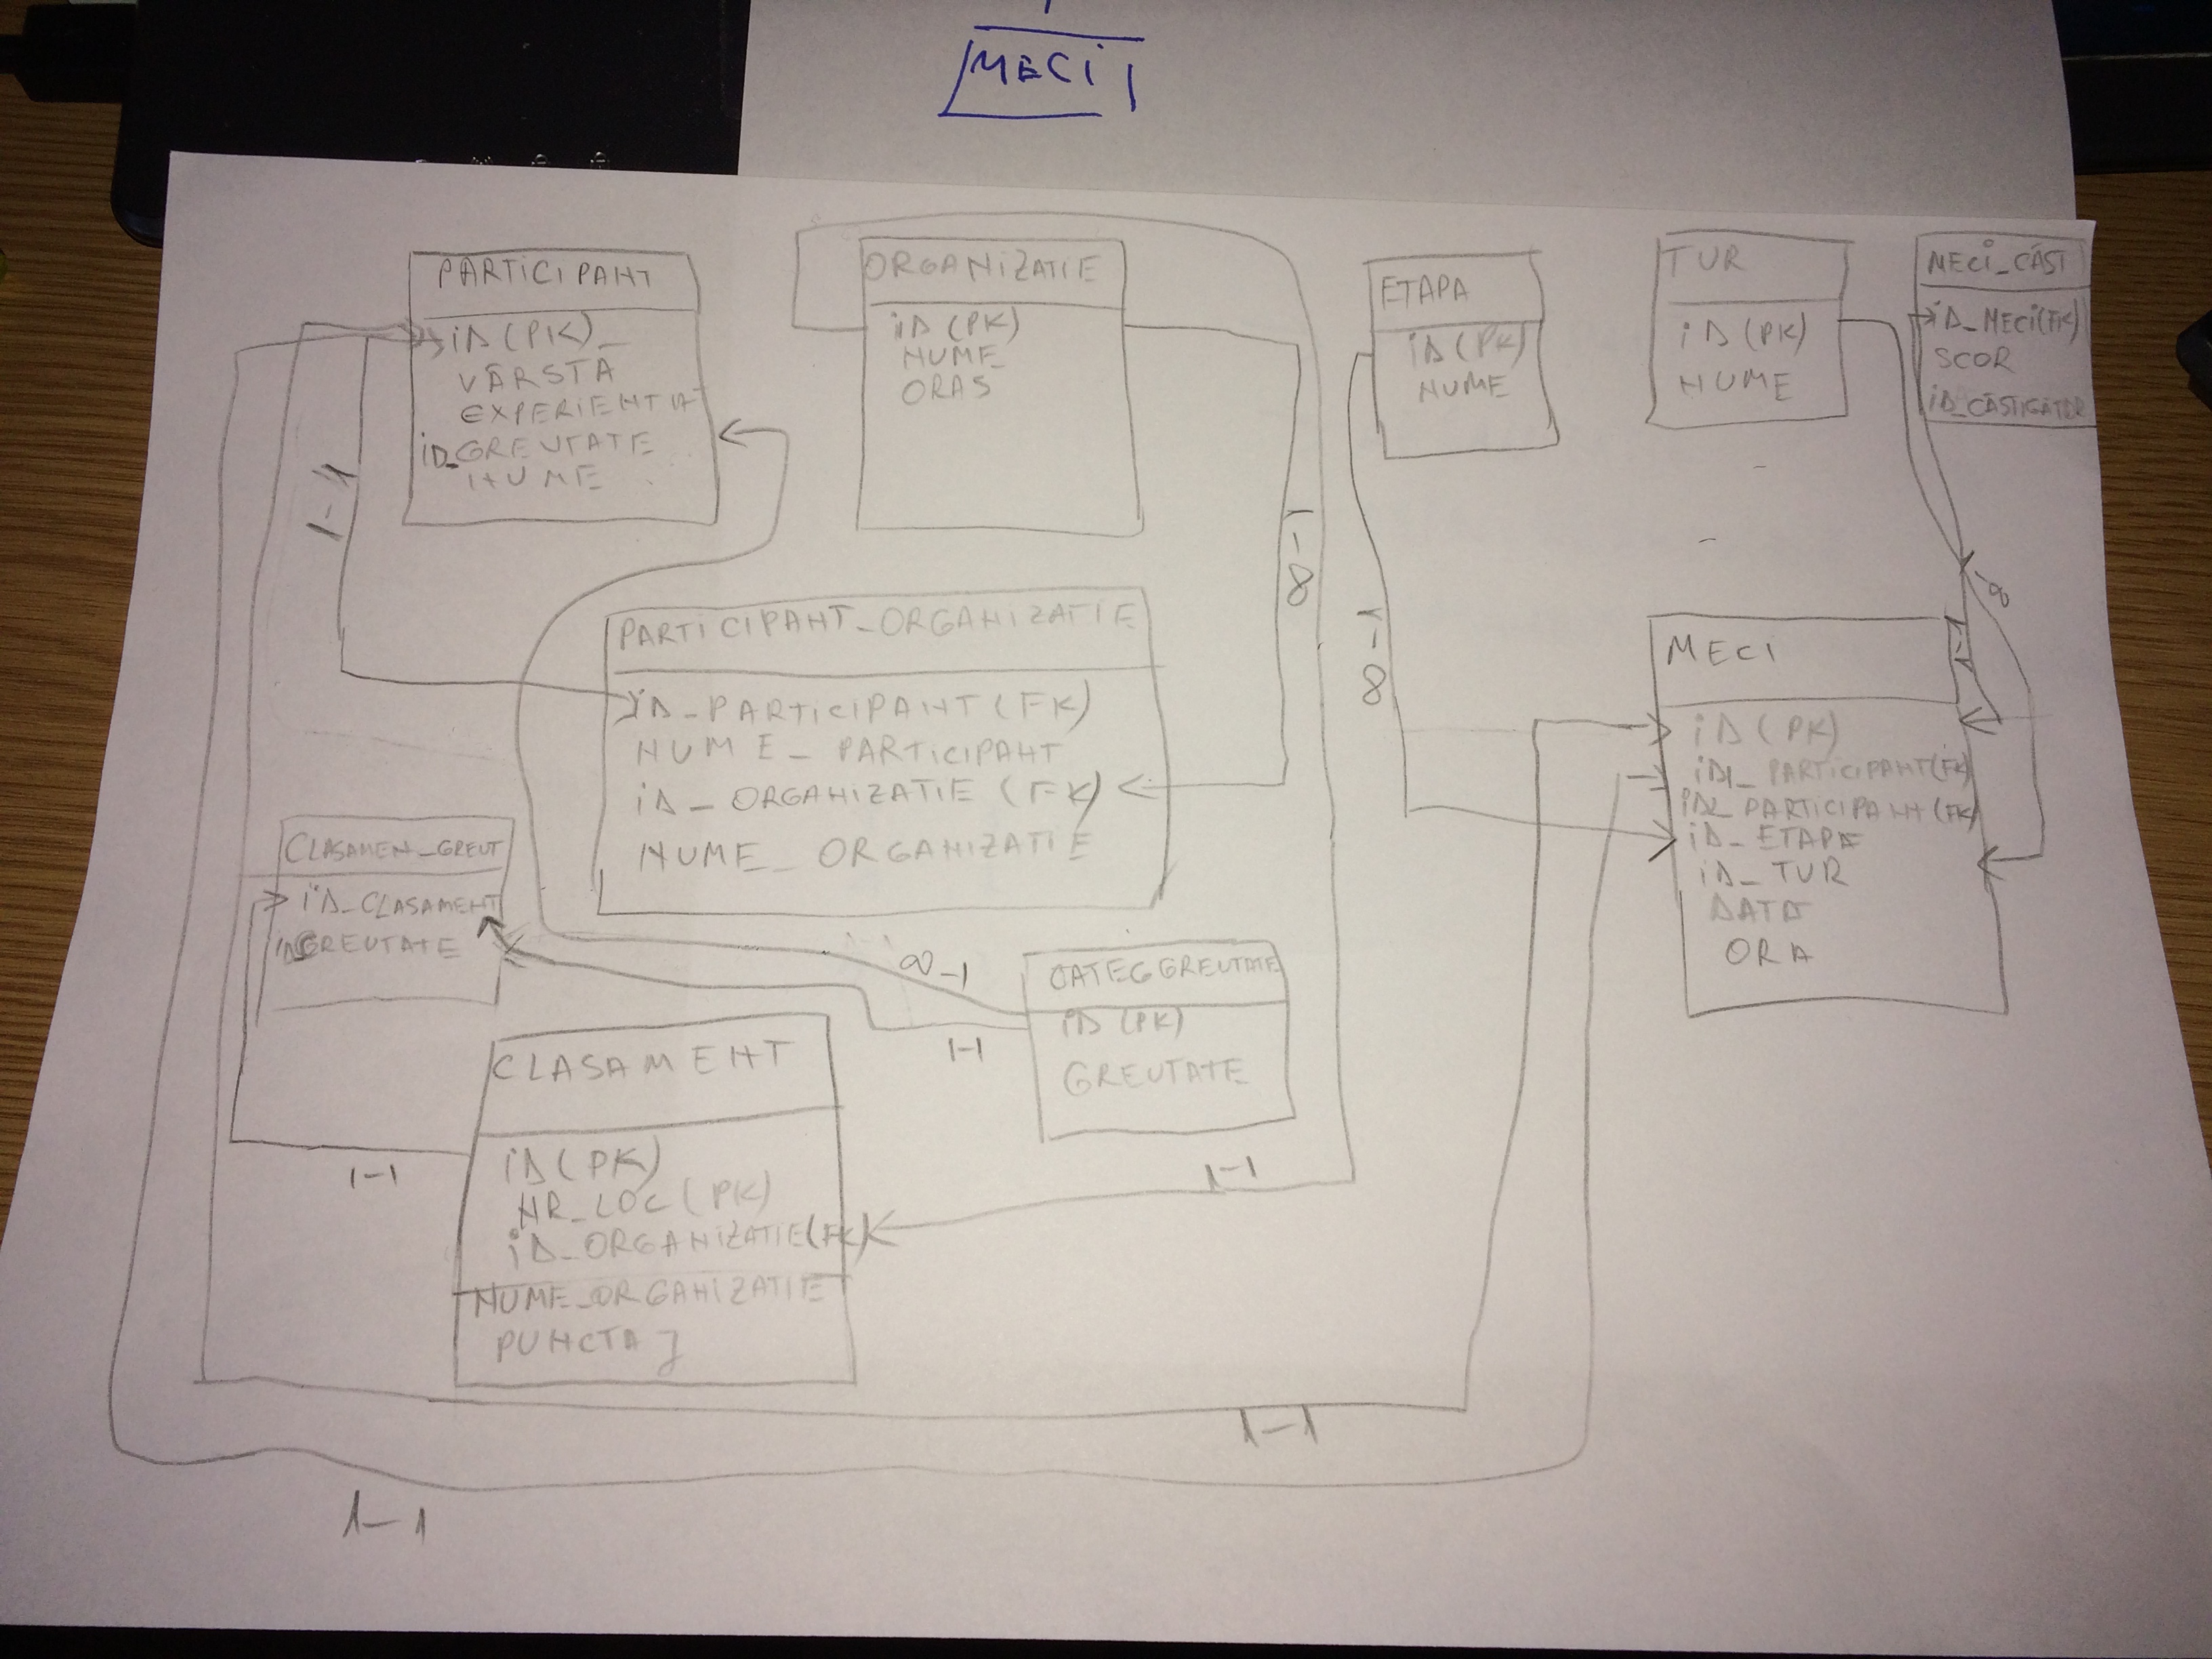 MECI
PARTICIPANT
ID (PK)
VÂRSTĂ
EXPERIENTA
ID_GREUTATE
NUME
ORGANIZATIE
ID (PK)
NUME
ORAS
ETAPA
ID (PK)
NUME
TUR
ID (PK)
NUME
MECI_CÂST
ID_MECI(FK)
SCOR
ID_CÂSTIGATOR
1-1
∞-1
∞-1
PARTICIPANT_ORGANIZATIE
ID_PARTICIPANT (FK)
NUME_PARTICIPANT
ID_ORGANIZATIE (FK)
NUME_ORGANIZATIE
∞
1-1
MECI
ID (PK)
ID1_PARTICIPANT(FK)
ID2_PARTICIPANT(FK)
ID_ETAPA
ID_TUR
DATA
ORA
CLASAMEN_GREUT
ID_CLASAMENT
GREUTATE
∞-1
1-1
CATEGGREUTATE
ID (PK)
GREUTATE
CLASAMENT
ID (PK)
NR_LOC (PK)
ID_ORGANIZATIE(FK)
NUME_ORGANIZATIE
PUNCTAJ
1-1
1-1
1-1
1-1